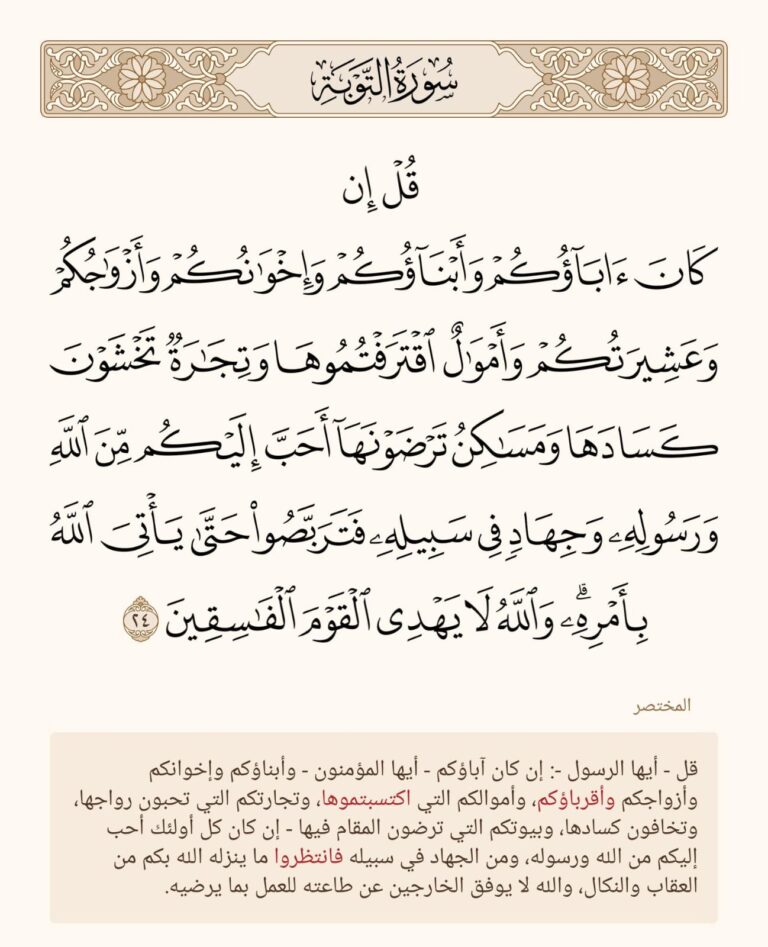 سُورَةُ التَّوْبَةِ
قُلْ إِن
كَانَ ءَابَآؤُكُمْ وَأَبْنَآؤُكُمْ وَإِخْوَٰنُكُمْ وَأَزْوَٰجُكُمْ
وَعَشِيرَتُكُمْ وَأَمْوَٰلٌ ٱقْتَرَفْتُمُوهَا وَتِجَٰرَةٌ تَخْشَوْنَ
كَسَادَهَا وَمَسَٰكِنُ تَرْضَوْنَهَآ أَحَبَّ إِلَيْكُم مِّنَ ٱللَّهِ
وَرَسُولِهِۦ وَجِهَادٍ فِي سَبِيلِهِۦ فَتَرَبَّصُوا۟ حَتَّىٰ يَأْتِيَ ٱللَّهُ
بِأَمْرِهِۦۗ وَٱللَّهُ لَا يَهْدِي ٱلْقَوْمَ ٱلْفَٰسِقِينَ ٢٤
المختصر
قل - أيها الرسول -: إن كان آباؤكم - أيها المؤمنون - وأبناؤكم وإخوانكم
وأزواجكم وأقرباؤكم، وأموالكم التي اكتسبتموها، وتجارتكم التي تحبون رواجها،
وتخافون كسادها، وبيوتكم التي ترضون المقام فيها - إن كان كل أولئك أحب
إليكم من الله ورسوله، ومن الجهاد في سبيله فانتظروا ما ينزله الله بكم من
العقاب والنكال، والله لا يوفق الخارجين عن طاعته للعمل بما يرضيه.